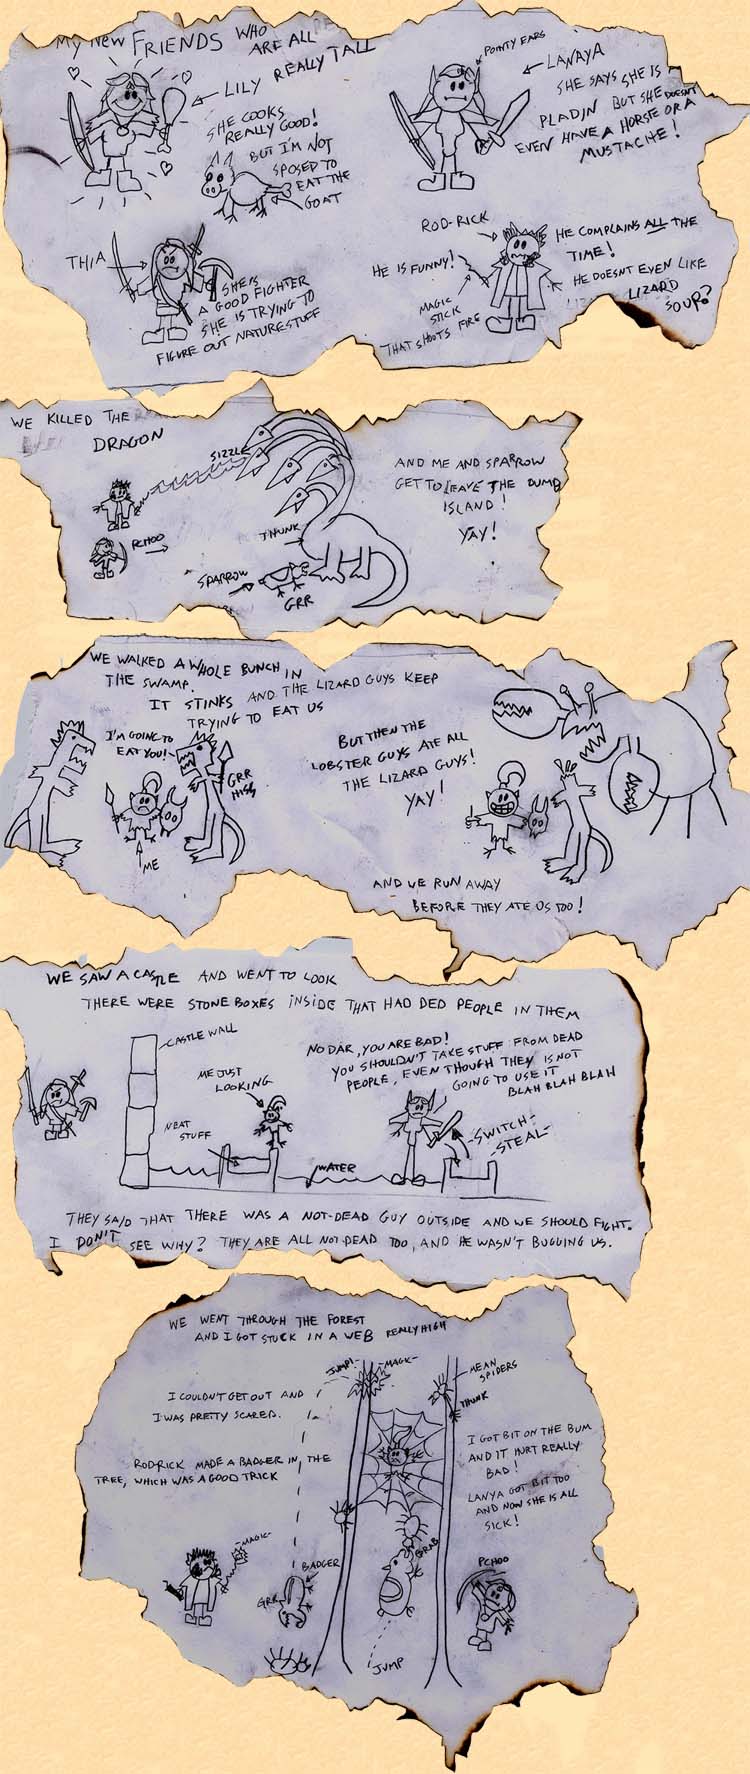 My New FRIENDS WHO
ARE ALL
REALLY TALL
LILY
SHE COOKS
REALLY GOOD!
BUT I'M NOT
SPOSED TO
EAT THE
GOAT
POINTY EARS
LANAYA
SHE SAYS SHE IS
PLADIN BUT SHE DOESN'T
EVEN HAVE A HORSE OR A
MUSTACHE!
THIA
SHE IS
A GOOD FIGHTER
SHE IS TRYING TO
FIGURE OUT NATURE STUFF
ROD-RICK
HE IS FUNNY!
MAGIC
STICK
THAT SHOOTS FIRE
HE COMPLAINS ALL THE
TIME!
HE DOESNT EVEN LIKE
LIZARD
SOUP?
WE KILLED THE
DRAGON
SIZZLE
PCHOO
THUNK
SPARROW
GRR
AND ME AND SPARROW
GET TO LEAVE THE DUMB
ISLAND!
YAY!
WE WALKED A WHOLE BUNCH IN
THE SWAMP.
IT STINKS AND THE LIZARD GUYS KEEP
TRYING TO EAT US
I'M GOING TO
EAT YOU!
GRR
HISS
ME
BUT THEN THE
LOBSTER GUYS ATE ALL
THE LIZARD GUYS!
YAY!
AND WE RUN AWAY
BEFORE THEY ATE US TOO!
WE SAW A CASTLE AND WENT TO LOOK
THERE WERE STONE BOXES INSIDE THAT HAD DED PEOPLE IN THEM
CASTLE WALL
NEAT
STUFF
ME JUST
LOOKING
WATER
NO DAR, YOU ARE BAD!
YOU SHOULDN'T TAKE STUFF FROM DEAD
PEOPLE, EVEN THOUGH THEY IS NOT
GOING TO USE IT
BLAH BLAH BLAH
-SWITCH-
-STEAL-
THEY SAID THAT THERE WAS A NOT-DEAD GUY OUTSIDE AND WE SHOULD FIGHT.
I DON'T SEE WHY? THEY ARE ALL NOT DEAD TOO, AND HE WASN'T BUGGING US.
WE WENT THROUGH THE FOREST
AND I GOT STUCK IN A WEB REALLY HIGH
JUMP!
-MAGIC-
MEAN
SPIDERS
THUNK
I COULDN'T GET OUT AND
I WAS PRETTY SCARED.
ROD-RICK MADE A BADGER IN THE
TREE, WHICH WAS A GOOD TRICK
I GOT BIT ON THE BUM
AND IT HURT REALLY
BAD!
LANYA GOT BIT TOO
AND NOW SHE IS ALL
SICK!
-MAGIC-
BADGER
GRR
GRAB
PCHOO
JUMP